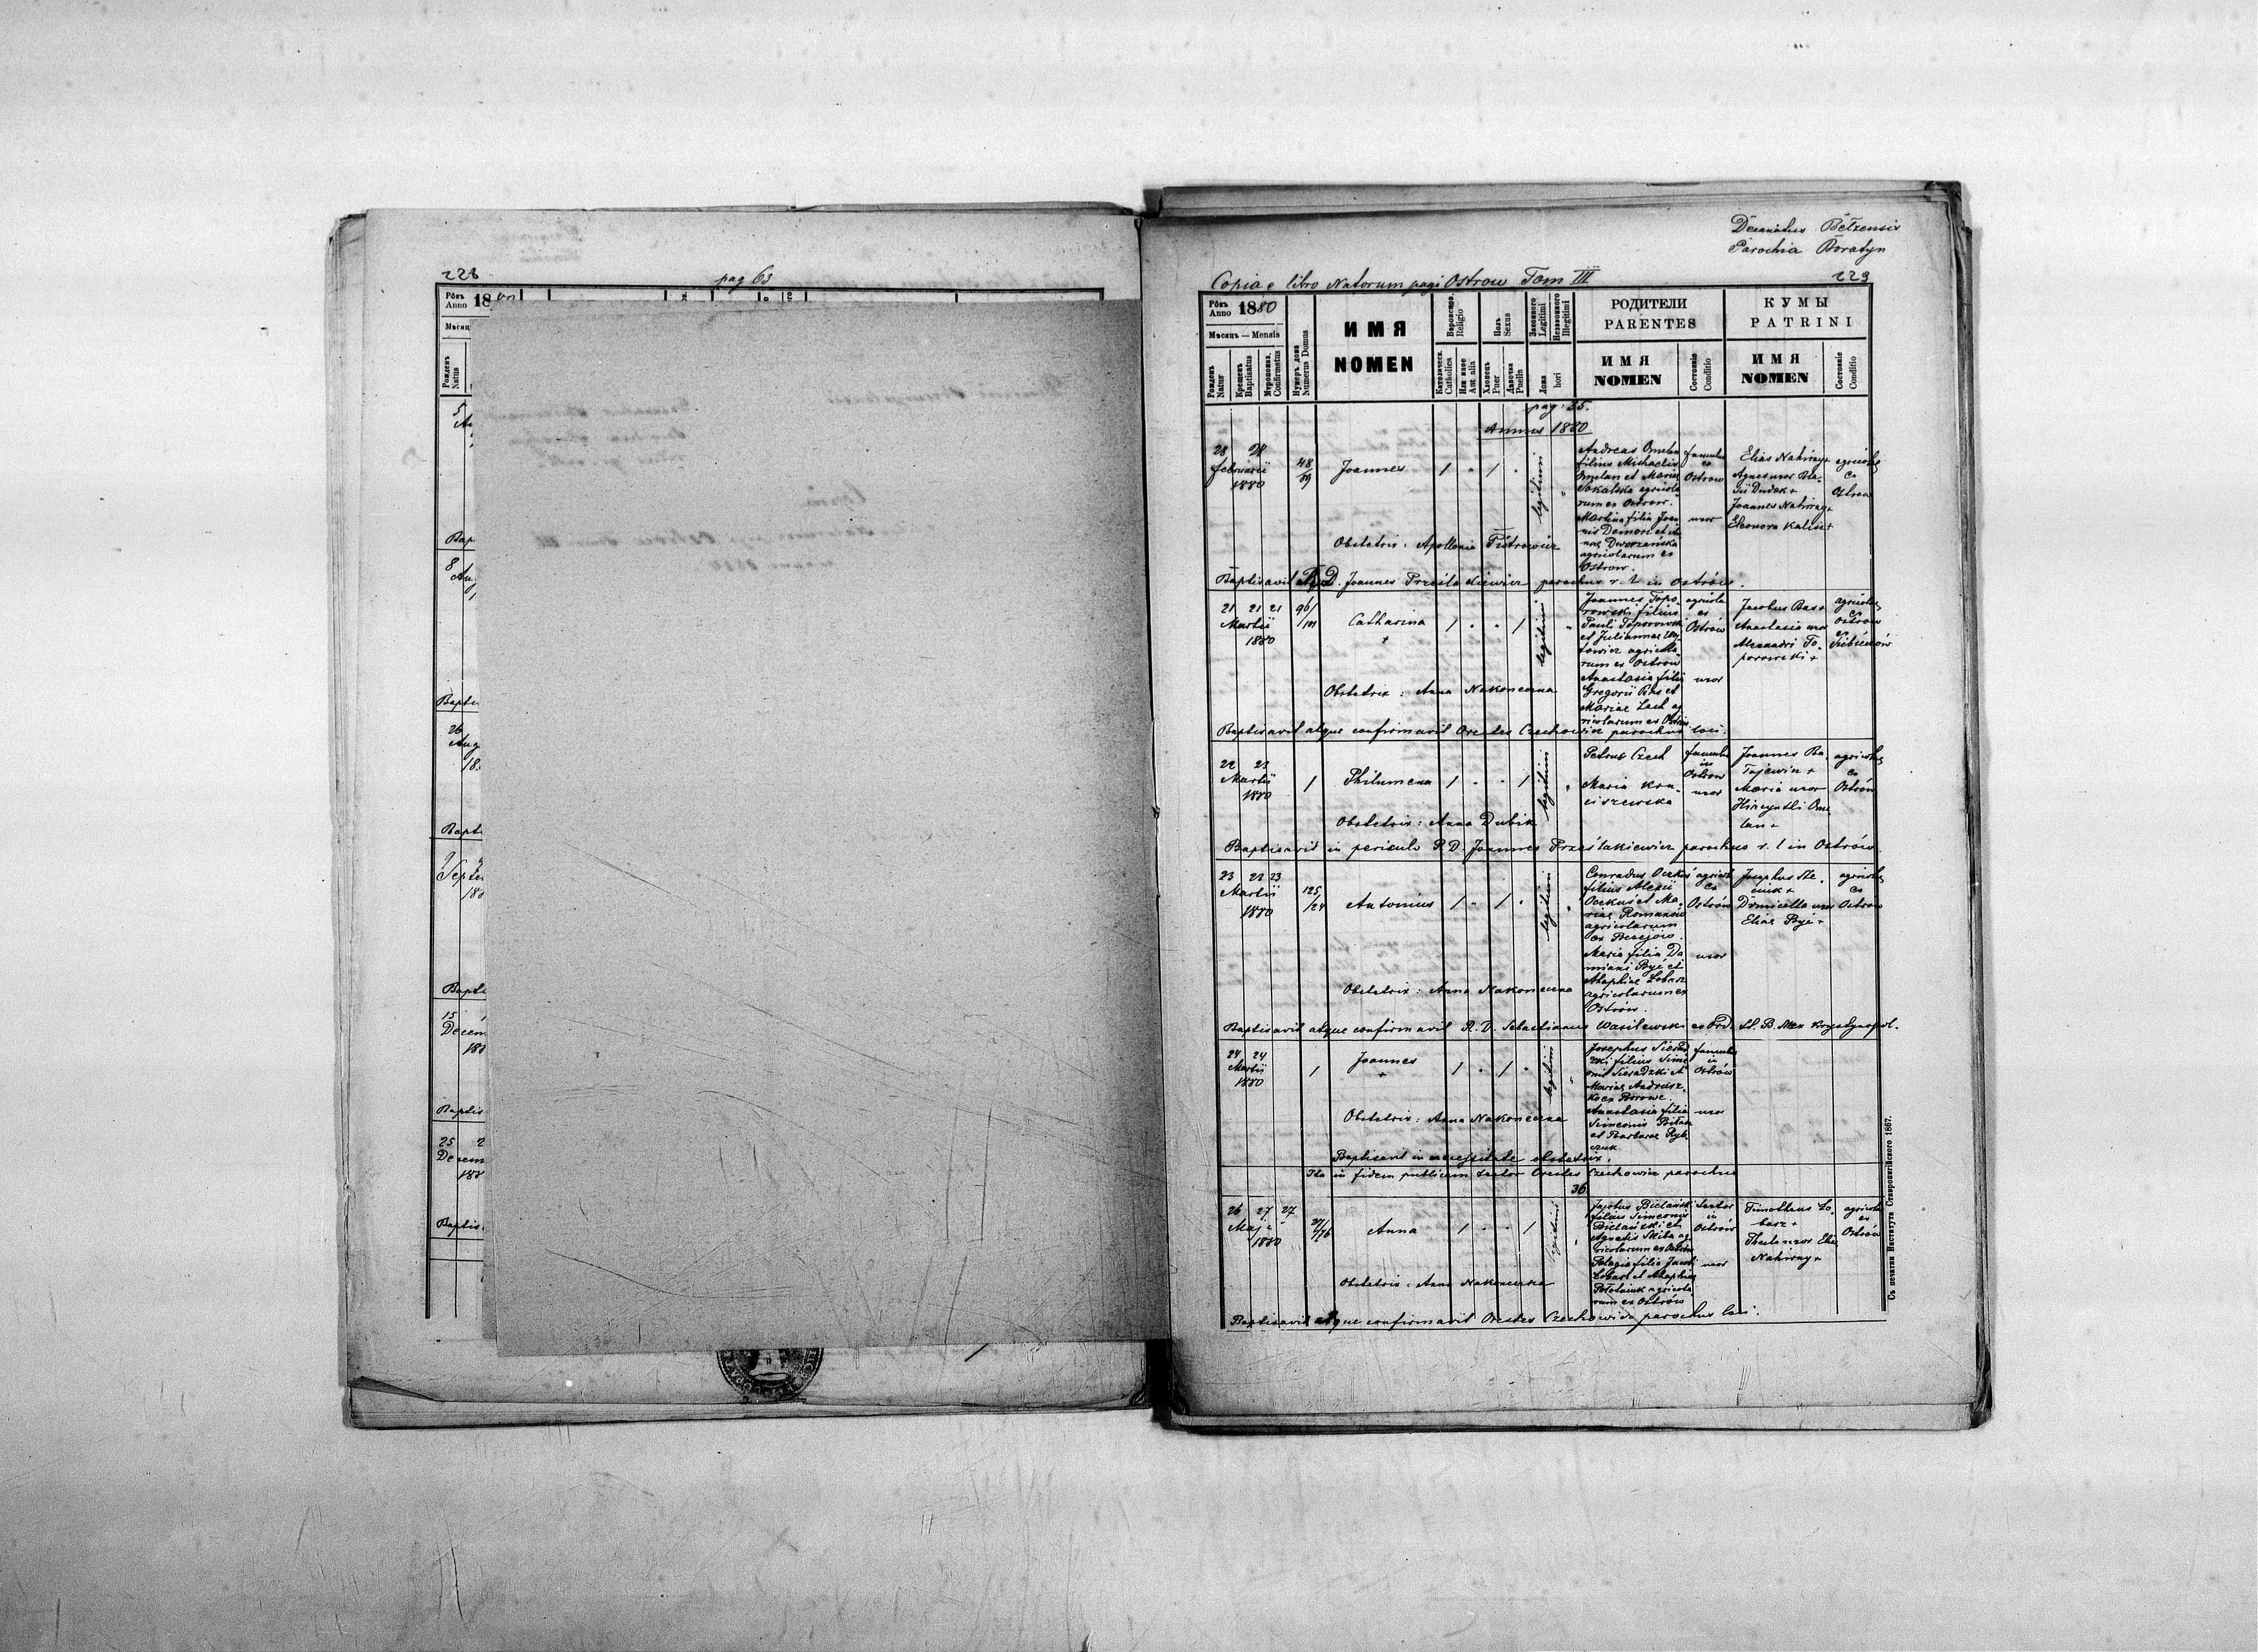 228
pag 63
Рôкъ
Anno 18
Рожденъ
Natus
5
Bap
8
Bapti
26
Aug
18
Bapt
9
Septe
188
Bapti
15
Decem
188
Baptis
25 2
Decem
188
Baptis
Decanatus Bełzensis
Parochia Boratyn
Copia e libro Natorum pagi Ostrow Tom III
229
Рôкъ
Anno 1880
Мѣсяць — Mensis
Рожденъ
Natus
Крещенъ
Baptisatus
Мѵропомаз.
Confirmatus
Нумеръ дома
Numerus Domus
ИМЯ
NOMEN
Вѣроиспов.
Religio
Католическ.
Catholica
Или иное
Aut alia
Полъ
Sexus
Хлопець
Puer
Дѣвочка
Puella
Законного
Legitimi
Незаконного
Illegitimi
Ложа
hori
РОДИТЕЛИ
PARENTES
ИМЯ
NOMEN
Состояніе
Conditio
КУМЫ
PATRINI
ИМЯ
NOMEN
Состояніе
Conditio
pag: 35.
Annus 1880
28 28
februarii
1880
48/89
Joannes
1 " 1 "
legitimi
Andreas Omelan
filius Michaelis
Omelan et Maria
Sokalska agricola
rum ex Ostrow.
Martina filia Joan
nis Demori et An
nae Dworzańska
agricolarum ex
Ostrow.
famulus
ex
Ostrow
uxor
Elias Nahirny +
Agnes uxor Bla
sii Dudek +
Joannes Nahirny +
Eleonora Kalisz +
agricolae
ex
Ostrow
Obstetrix: Apollonia Piotrowicz
Baptisavit R. D. Joannes Prześlakiewicz parochus r. l. in Ostrów.
21 21 21
Martii
1880
96/101
Catharina
+
1 " " 1
legitimi
Joannes Topo
rowski filius
Pauli Toporowski
et Juliannae
agricola
rum ex Ostrow
Anastasia filia
Gregorii Bas et
Mariae Lach ag
ricolarum ex Ostrów
agricola
ex
Ostrów
uxor
Jacobus Bas +
Anastasia uxor
Alexandri To
porowski +
agricolae
ex
Ostrow
Obstetrix: Anna Nakoneczna
Baptisavit atque confirmavit Orestes Czechowicz parochus loci.
22 23
Martii
1880
1
Philumena
1 " " 1
legitimi
Petrus Czech
Maria Kra
ciszewska
famulus
in
Ostrow
uxor
Joannes Ba
Tajewicz +
Maria uxor
Hiacynthi Ome
lan +
agricolae
ex
Ostrów
Obstetrix: Anna Dubik
Baptisavit in periculo R. D. Joannes Prześlakiewicz parochus r. l in Ostrów
23 22 23
Martii
1880
125/24
Antonius
1 " 1 "
legitimi
Conradus Oczkuś
filius Alexii
Oczkuś et Ma
riae Romanów
agricolarum
ex Bezejów.
Maria filia Da
miani Pyć et
Ahaphiae Łobasz
agricolarum ex
Ostrów.
agricola
ex
Ostrów
uxor
Josephus Ste
ciuk +
Domicella uxor
Eliae Pyć +
agricolae
ex
Ostrow
Obstetrix: Anna Nakoneczna
Baptisavit atque confirmavit R. D. Sebastianus Wasilewski ex Ord. St. B. Mon Krystynopol.
24 24
Martii
1880
1
Joannes
+
1 " 1 "
legitimi
Josephus Sierad
zki filius Sime
onis Sieradzki et
Mariae Andrusz
ko ex Borowe.
Anastasia filia
Simeonis
et Barbarae Ryb
czuk
famulus
in
Ostrów
uxor
Obstetrix: Anna Nakoneczna
Baptisavit in necessitate obstetrix.
Ita in fidem publicam testor Orestes Czechowicz parochus
36.
26 27 27
Maji
1880
27/76
Anna
1 " " 1
legitimi
Jacobus Bielański
filius Simeonis
Bielański et
Agnetis Skiba ag
ricolarum ex Ostrów
Pelagia filia Jacobi
Łobasz et Ahaphiae
Połotniuk agricola
rum ex Ostrów
in
Ostrów
uxor
Timotheus Ło
basz +
Thecla uxor Eliae
Nahirny +
agricolae
ex
Ostrów
Obstetrix: Anna Nakoneczna
Baptisavit atque confirmavit Orestes Czechowicz parochus loci.
Съ печатни Института Ставропигійского 1867.